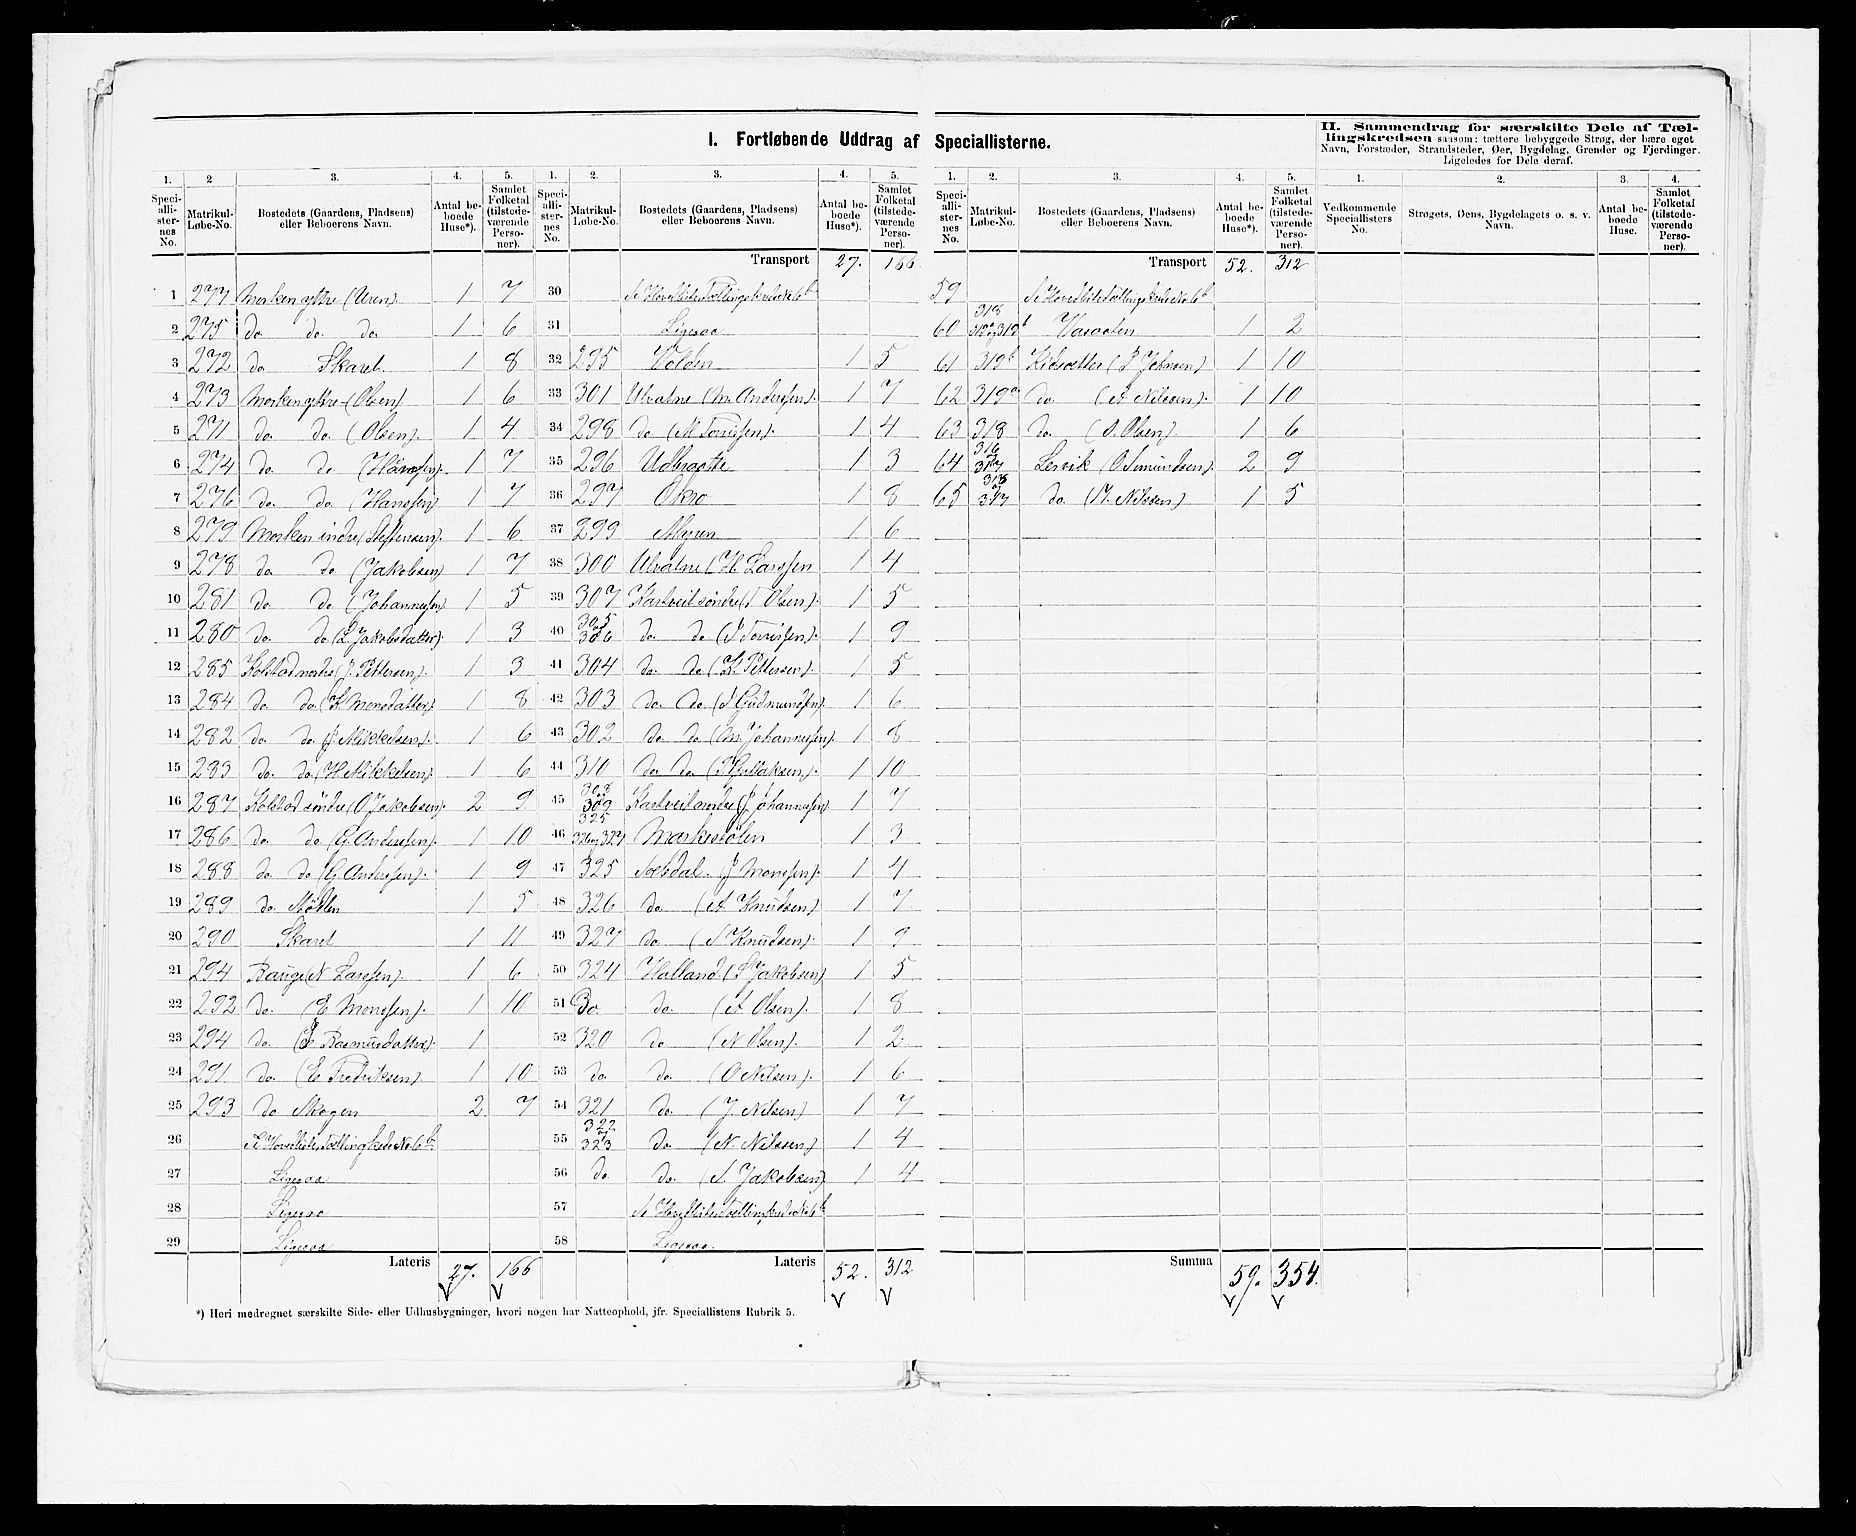 I. Fortløbende Uddrag af Speciallisterne.
II. Sammendrag for særskilte Dele af Tæl-
lingskredsen saasom: tættere bebyggede Strøg, der bære eget
Navn, Forstæder, Strandsteder, Øer, Bygdelag, Grender og Fjerdinger.
Ligeledes for Dele deraf.
1. 2 3. 4. 5.
Speciallisternes No. Matrikul-Løbe-No. Bostedets (Gaardens, Pladsens) eller Beboerens Navn. Antal beboede Huse*). Samlet Folketal (tilstedeværende Personer).
1 277 Morken yttre (Uren). 1 7
2 275 do do do 1 6
3 272 do Skaret 1 8
4 273 Morken yttre (Olsen) 1 6
5 271 do. do. (Olsen). 1 4
6 274 do. do 1 7
7 276 do. do. (Hanssen) 1 7
8 279 Morken indre (Steffensen). 1 6
9 278 do do (Jakobsen) 1 7
10 281 do. do (Johannesen) 1 5
11 280 do. do (L. Jakobsdatter). 1 3
12 285 Kolstad nordre (J. Pettersen). 1 3
13 284 do. do. (K Monsdatter) 1 8
14 282 do do (J. Mikkelsen). 1 6
15 283 do. do. (H Mikkelsen). 1 6
16 287 Kolstad søndre (O Jakobsen). 2 9
17 286 do. do. (G. Anderssen). 1 10
18 288 do do (G. Anderssen). 1 9
19 289 do. 1 5
20 290 Skaret 1 11
21 294 Bauge (N Larssen). 1 6
22 292 do. (E Monssen). 1 10
23 294 do. Rasmusdatter). 1
24 291 do. (E Fredriksen). 1 10
25 293 do Skogen 2 7
26 Se Hovedliste Tællingskreds No 6b
27 Ligesaa
28 Ligesaa
29 Ligesaa
Lateris 27. 166
1. 2. 3. 4. 5.
Speciallisternes No. Matrikul-Løbe-No. Bostedets (Gaardens, Pladsens) eller Beboerens Navn. Antal beboede Huse*). Samlet Folketal (tilstedeværende Personer).
Transport 27. 166
30 Se Hovedliste Tællingskreds No 6b
31 Ligesaa
32 295 Volden 1 5
33 301 Ulvatne (M. Anderssen). 1 7
34 298 do (M Torrissen). 1 4
35 296 Udbraatte 1 3
36 297 Økro 1 8
37 299 Myren 1 6
38 300 Ulvatne (H. Larssen 1 4
39 307 Kartveit søndre (T Olsen). 1 5
40 305 og 306 do do (T Torrissen). 1 9
41 304 do. do (K. Pettersen). 1 5
42 303 do. do. (S Gudmundsen). 1 6
43 302 do do (M. Johannessen). 1 8
44 310 do do (T Gullaksen). 1 10
45 308 og 309 Kartveit nordre (J. Johannessen) 1 7
46 325 326 og 327 Morkestølen 1 3
47 325 Sædal. (J Monssen). 1 4
48 326 do (A Knudsen) 1 7
49 327 do (S Knudsen). 1 9
50 324 Halland (S Jakobsen) 1 5
51 Do. do. (A Olsen). 1 8
52 320 do (N Olsen). 1 2
53 do do. (O Nilsen). 1 6
54 321 do. (J. Nilsen) 1 7
55 322 og 323 do. (N. Nilssen). 1 4
56 do. do. (S. Jakobsen) 1 4
57 Se Hovedliste Tællingskreds No 6b
58 Ligesaa.
Lateris 52. 312
1. 2. 3. 4. 5.
Speciallisternes No. Matrikul-Løbe-No. Bostedets (Gaardens, Pladsens) eller Beboerens Navn. Antal beboede Huse*). Samlet Folketal (tilstedeværende Personer).
Transport 52. 312
59 Se Hovedliste Tællingskreds No 6b
60 318 319a og 319b Vasaaten 1 2
61 319b Kidsætter (J Johnsen) 1 10
62 319a do. (A Nilssen). 1 10
63 318 do. (S. Olsen). 1 6
64 316 og 317 Lervik (O Simundsen). 2 9
65 316 og 317 do (M. Nilssen) 1 5
Summa 59. 354.
1. 2. 3. 4.
Vedkommende Speciallisters No. Strøgets, Øens, Bygdelagets o. s. v. Navn. Antal beboede Huse. Samlet Folketal (tilstedeværende Personer).
*) Heri medregnet særskilte Side- eller Udhusbygninger, hvori nogen har Natteophold, jfr. Speciallistens Rubrik 5.